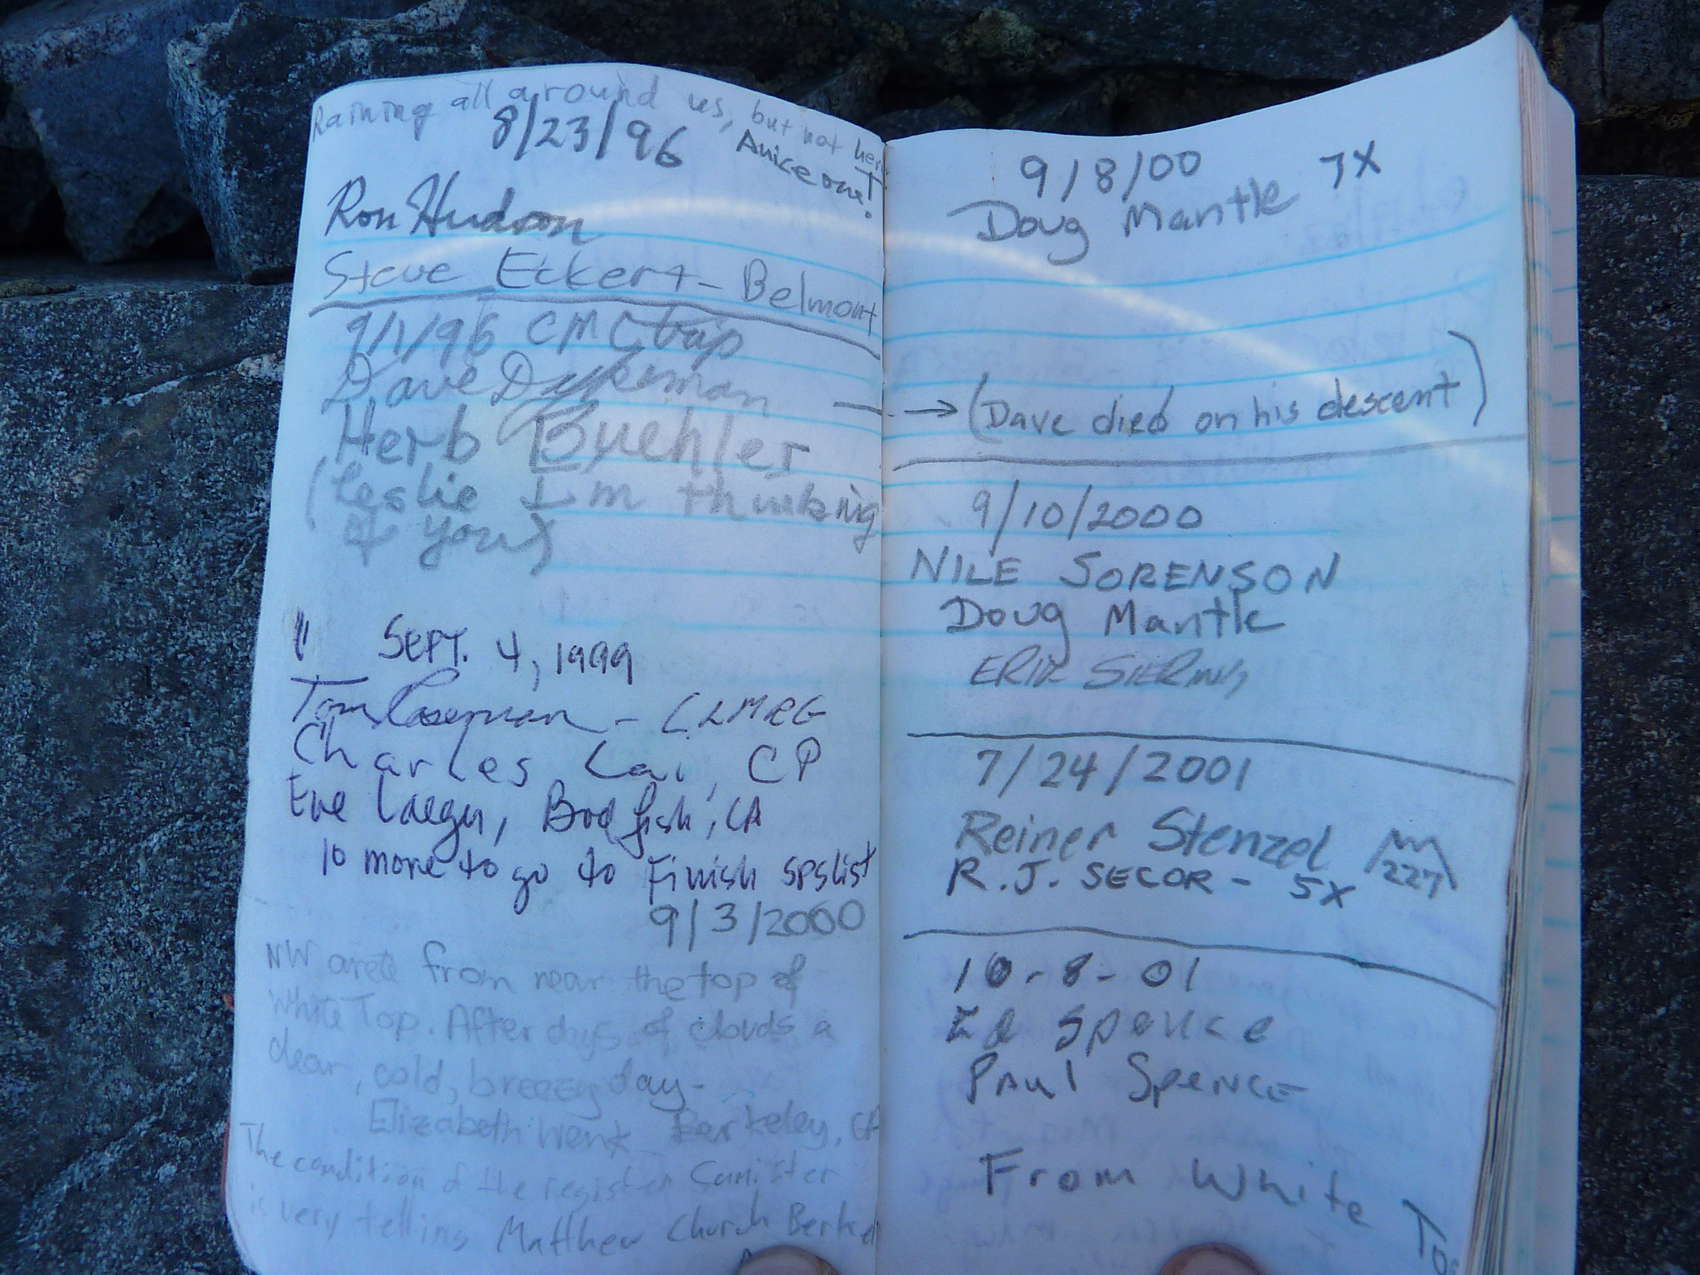 Raining all around us, but not here
8/23/96
A nice one!
Ron Hudson
Steve Eckert - Belmont
9/1/96 CMC trip
Dave Dykeman
Herb Buehler
(Leslie I'm thinking
of you)
SEPT. 4, 1999
Tom - CLMRG
Charles Lai, CP
Eve Laeger, Bodfish, CA
10 more to go to Finish sps list
9/3/2000
NW arete from near the top of
White Top. After days of clouds a
clear, cold, breezy day-
Elizabeth Wenk Berkeley, CA
The condition of the register
is very telling Matthew Church
9/8/00
Doug Mantle 7X
→ (Dave died on his descent)
9/10/2000
NILE SORENSON
Doug Mantle
ERIK SIERING
7/24/2001
Reiner Stenzel 227
R.J. SECOR - 5X
10-8-01
Ed Spence
Paul Spence
From White Top